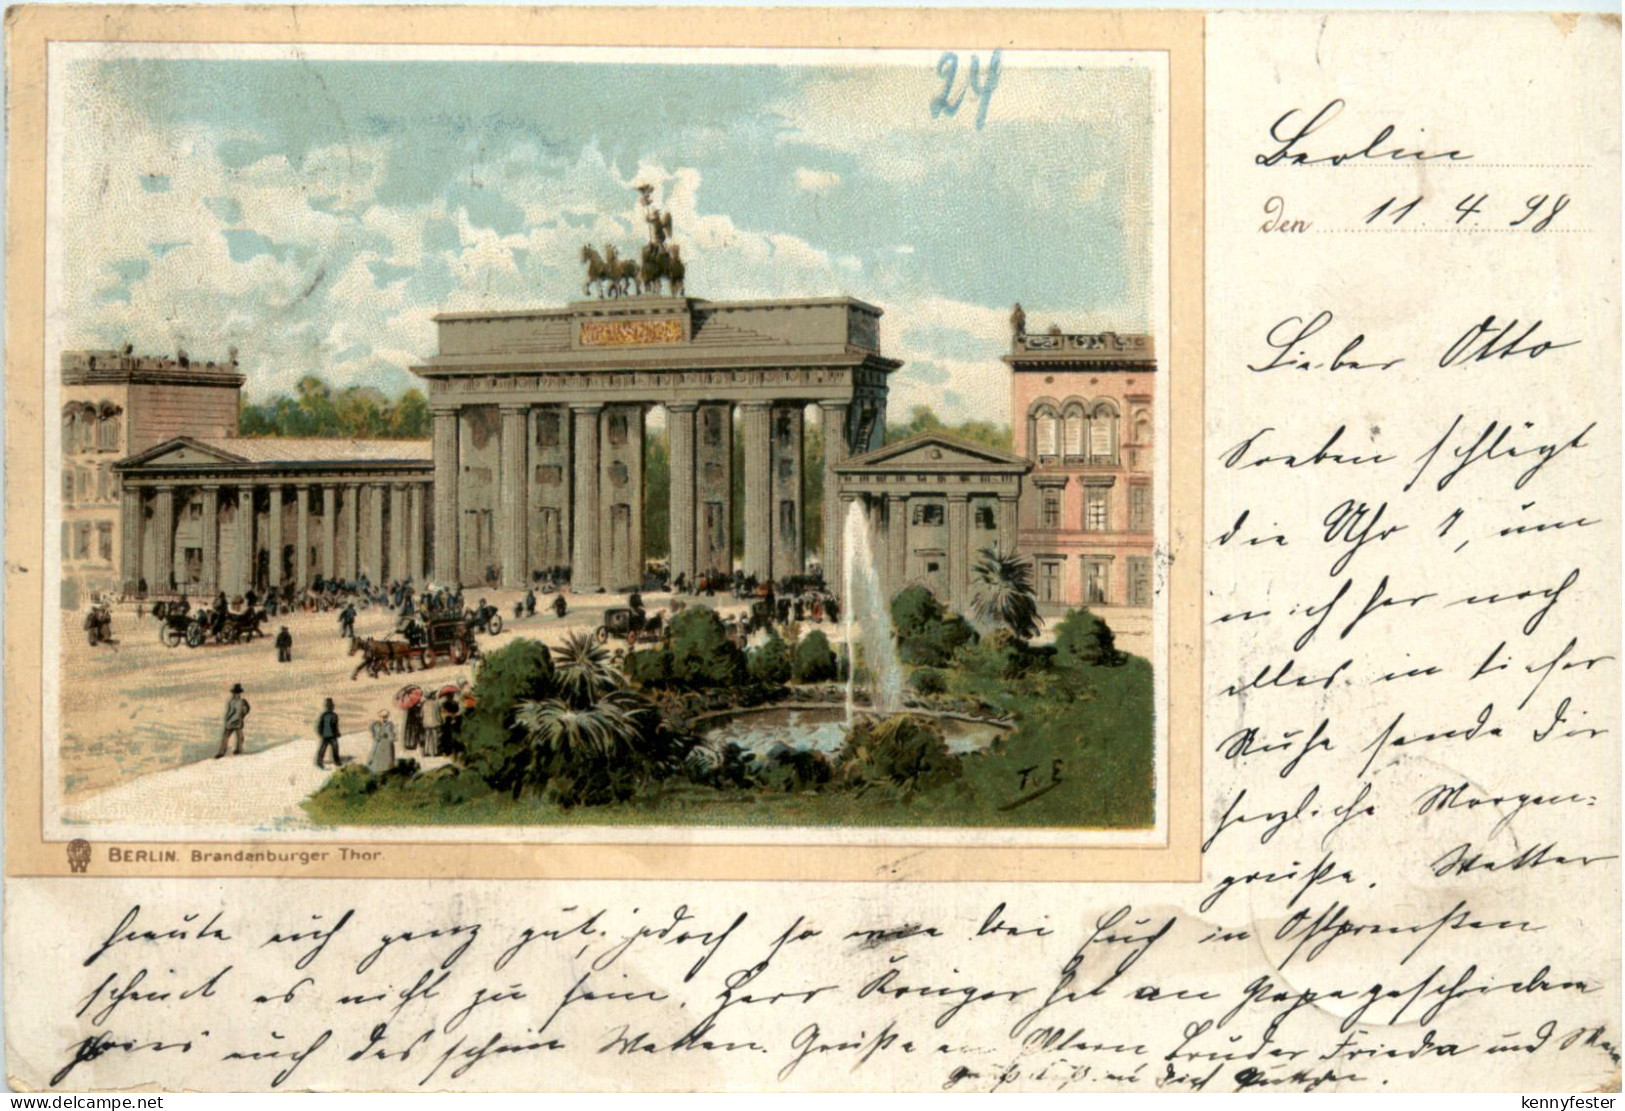 24
Berlin
den 11. 4. 98
Lieber Otto
Soeben schlägt
die Uhr 1, um
mich her noch
alles in tiefer
Ruhe sende Dir
herzliche Morgen-
grüße. Wetter
heute auch ganz gut; jedoch so wie bei Euch in Ostpreußen
scheint es nicht zu sein. Herr Krüger hat an Papa geschrieben
auch das schöne Wetter. Grüße Eltern Bruder Frieda und
Dich
T v E
BERLIN. Brandenburger Thor.
delcampe.net
kennyfester